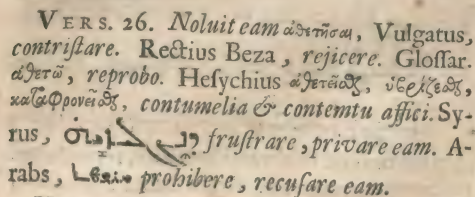 VERS. 26. Noluit eam ἀθετῆσαι, Vulgatus,
contriſtare. Rectius Beza, rejicere. Gloſſar.
ἀθετῶ, reprobo. Heſychius ἀθετεῖσθαι, ὑβρίζεσθαι,
καταφρονεῖσθαι, contumelia & contemtu affici. Sy-
rus, fruſtrare, privare eam. A-
rabs, prohibere, recuſare eam.